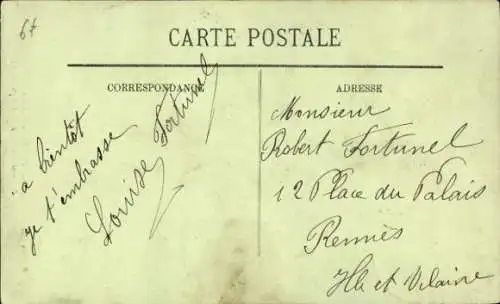 6+
CARTE POSTALE
CORRESPONDANCE
a bientôt
je t'embrasse
Louise Fortunel
ADRESSE
Monsieur
Robert Fortunel
12 Place du Palais
Rennes
Ille et Vilaine